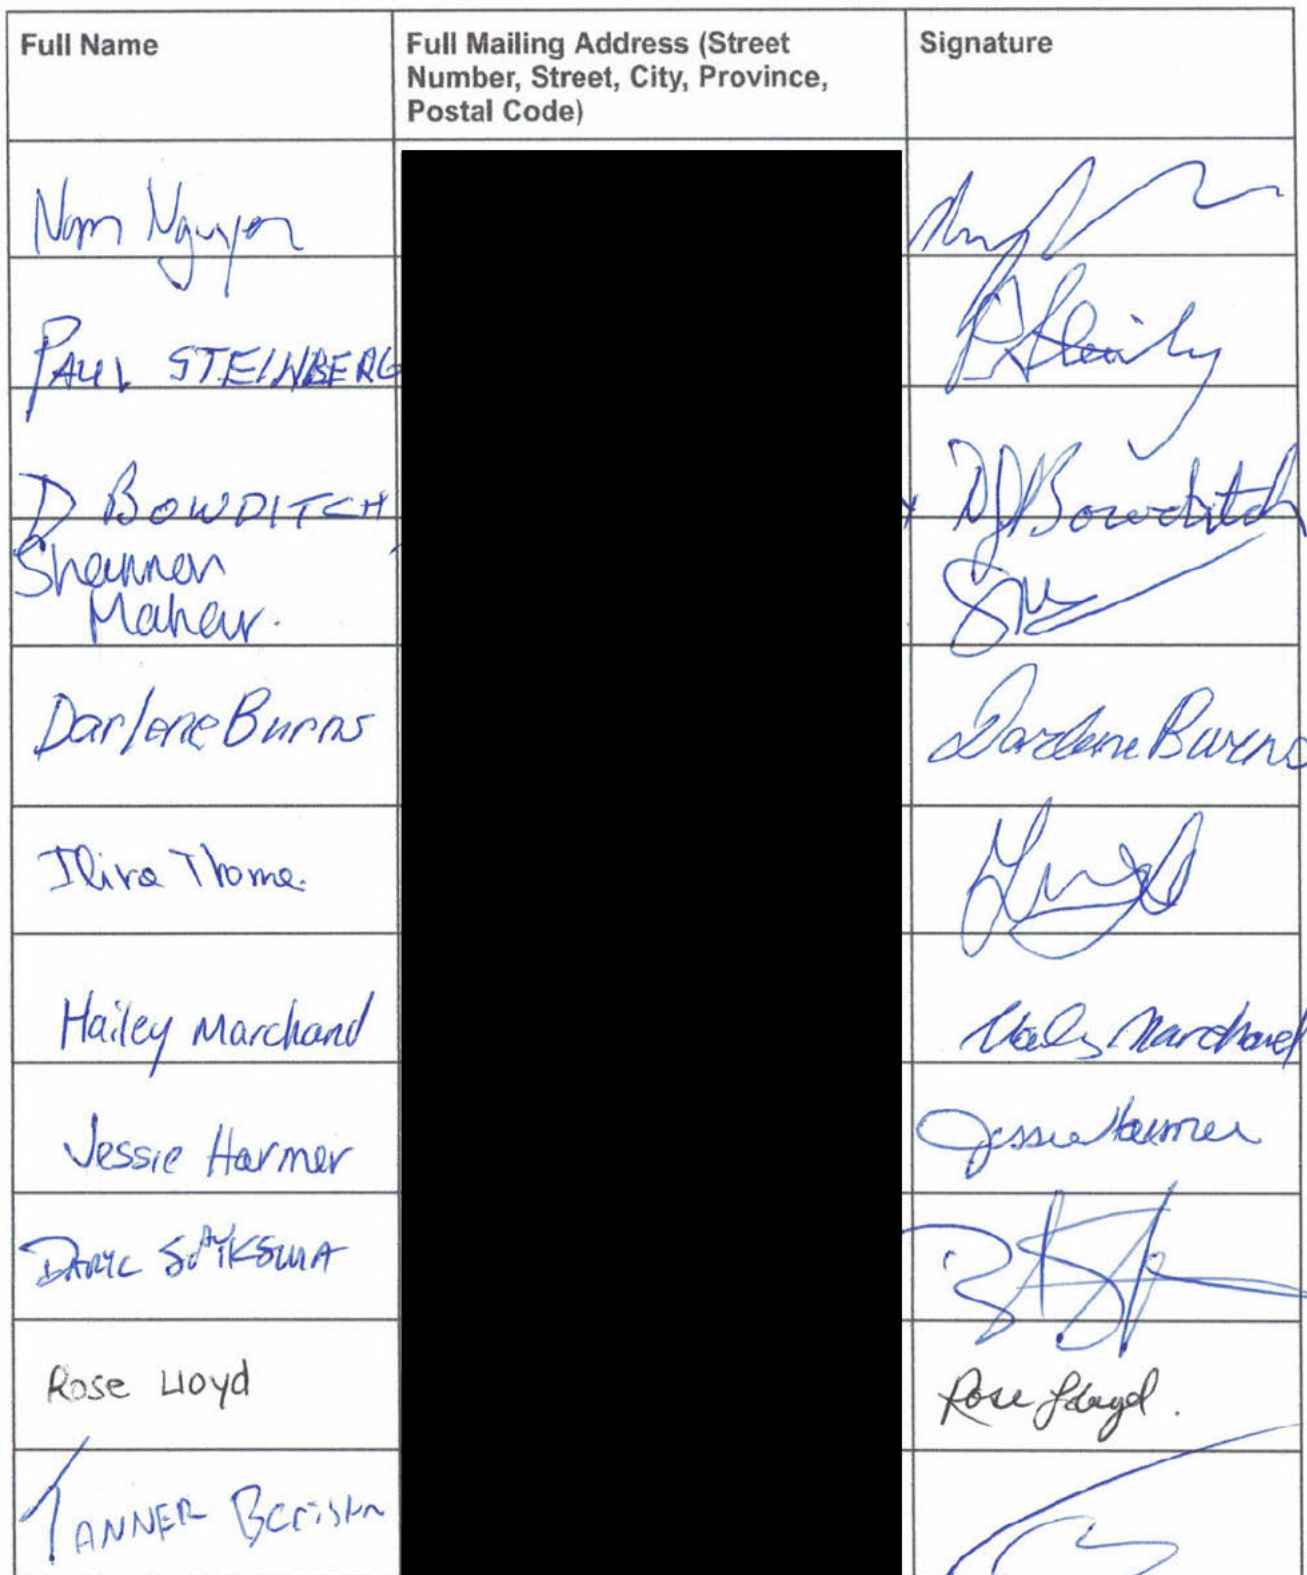 Full Name
Full Mailing Address (Street
Number, Street, City, Province,
Postal Code)
Signature
Nam Nguyen
PAUL STEINBERG
D BOWDITCH
DJBowditch
Shannon
Maher.
Darlene Burns
Darlene Burns
Thoma
Hailey Marchand
Hailey Marchand
Jessie Harmer
Jessie Harmer
Rose Lloyd
Rose Lloyd.
TANNER